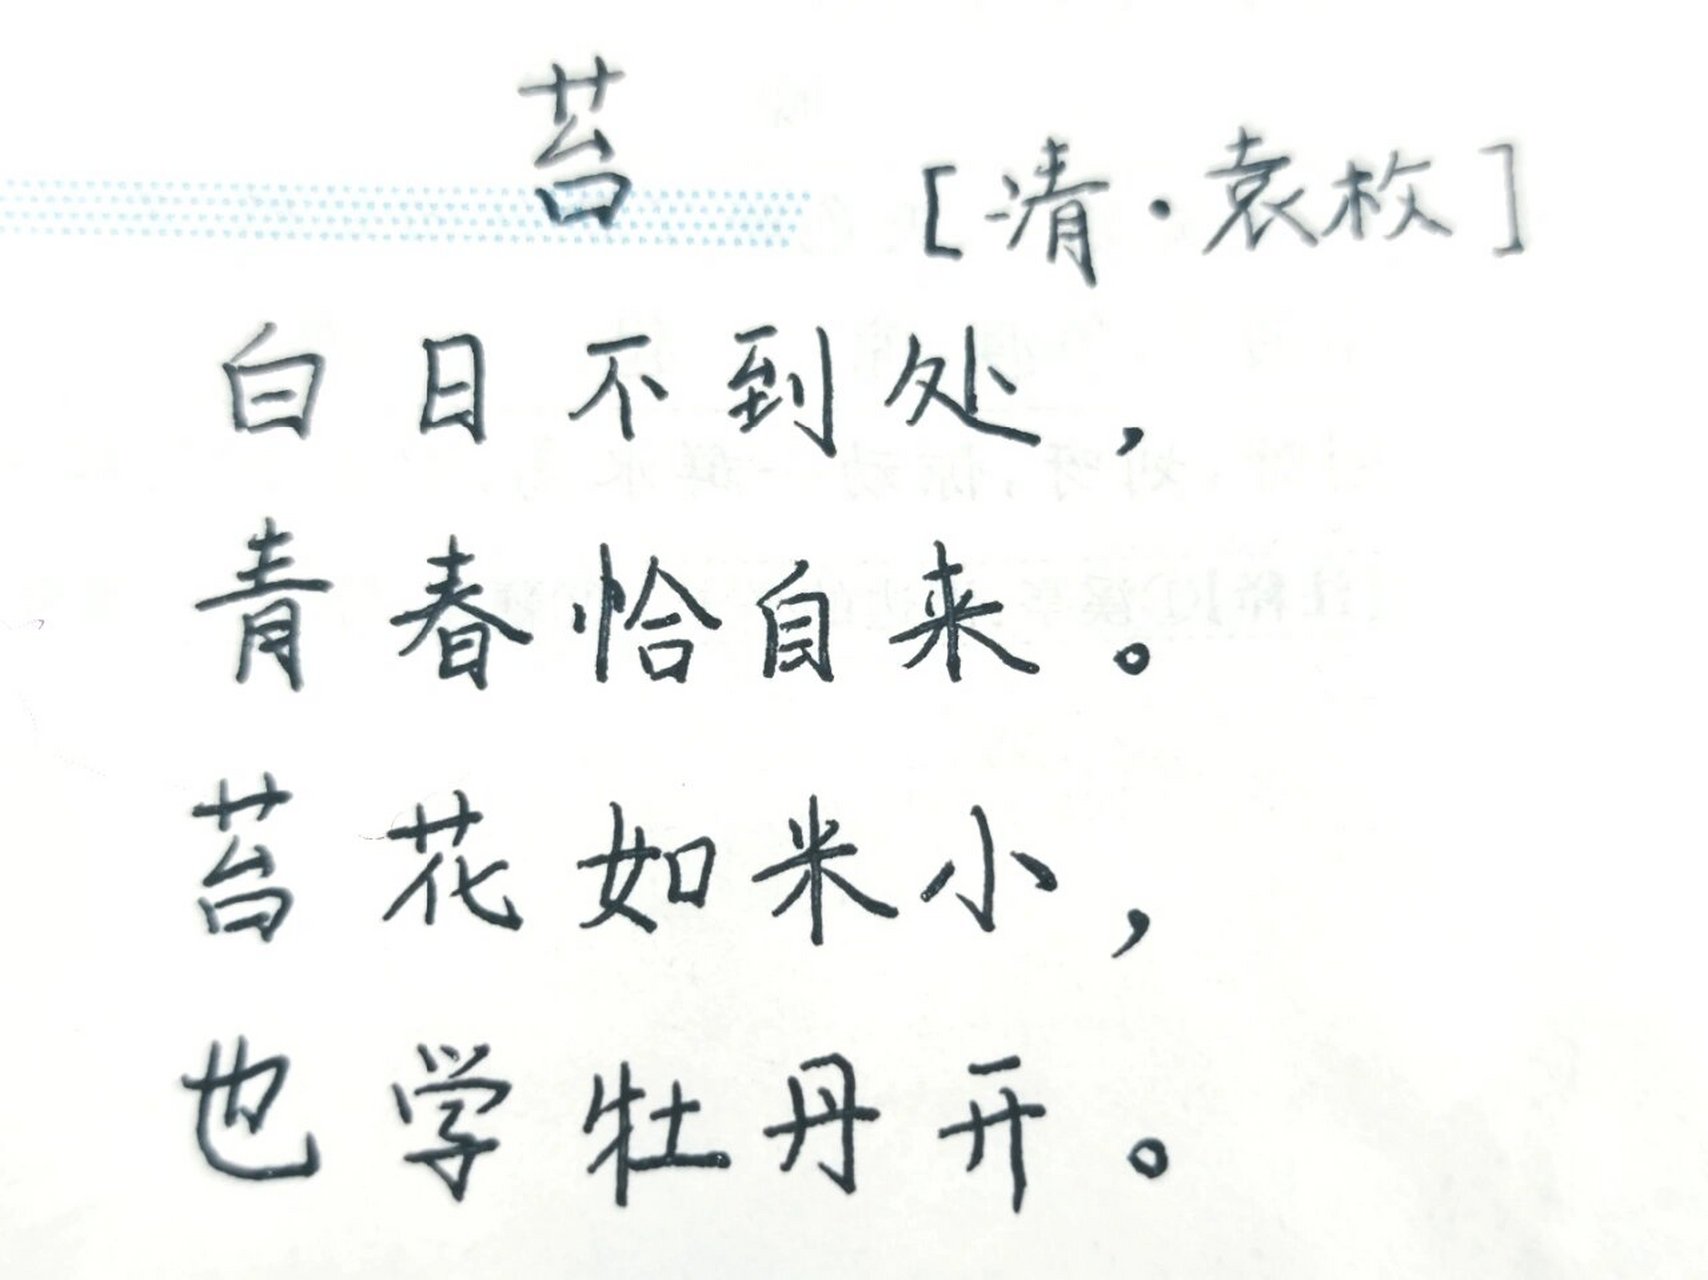 苔
[清·袁枚]
白日不到处，
青春恰自来。
苔花如米小，
也学牡丹开。